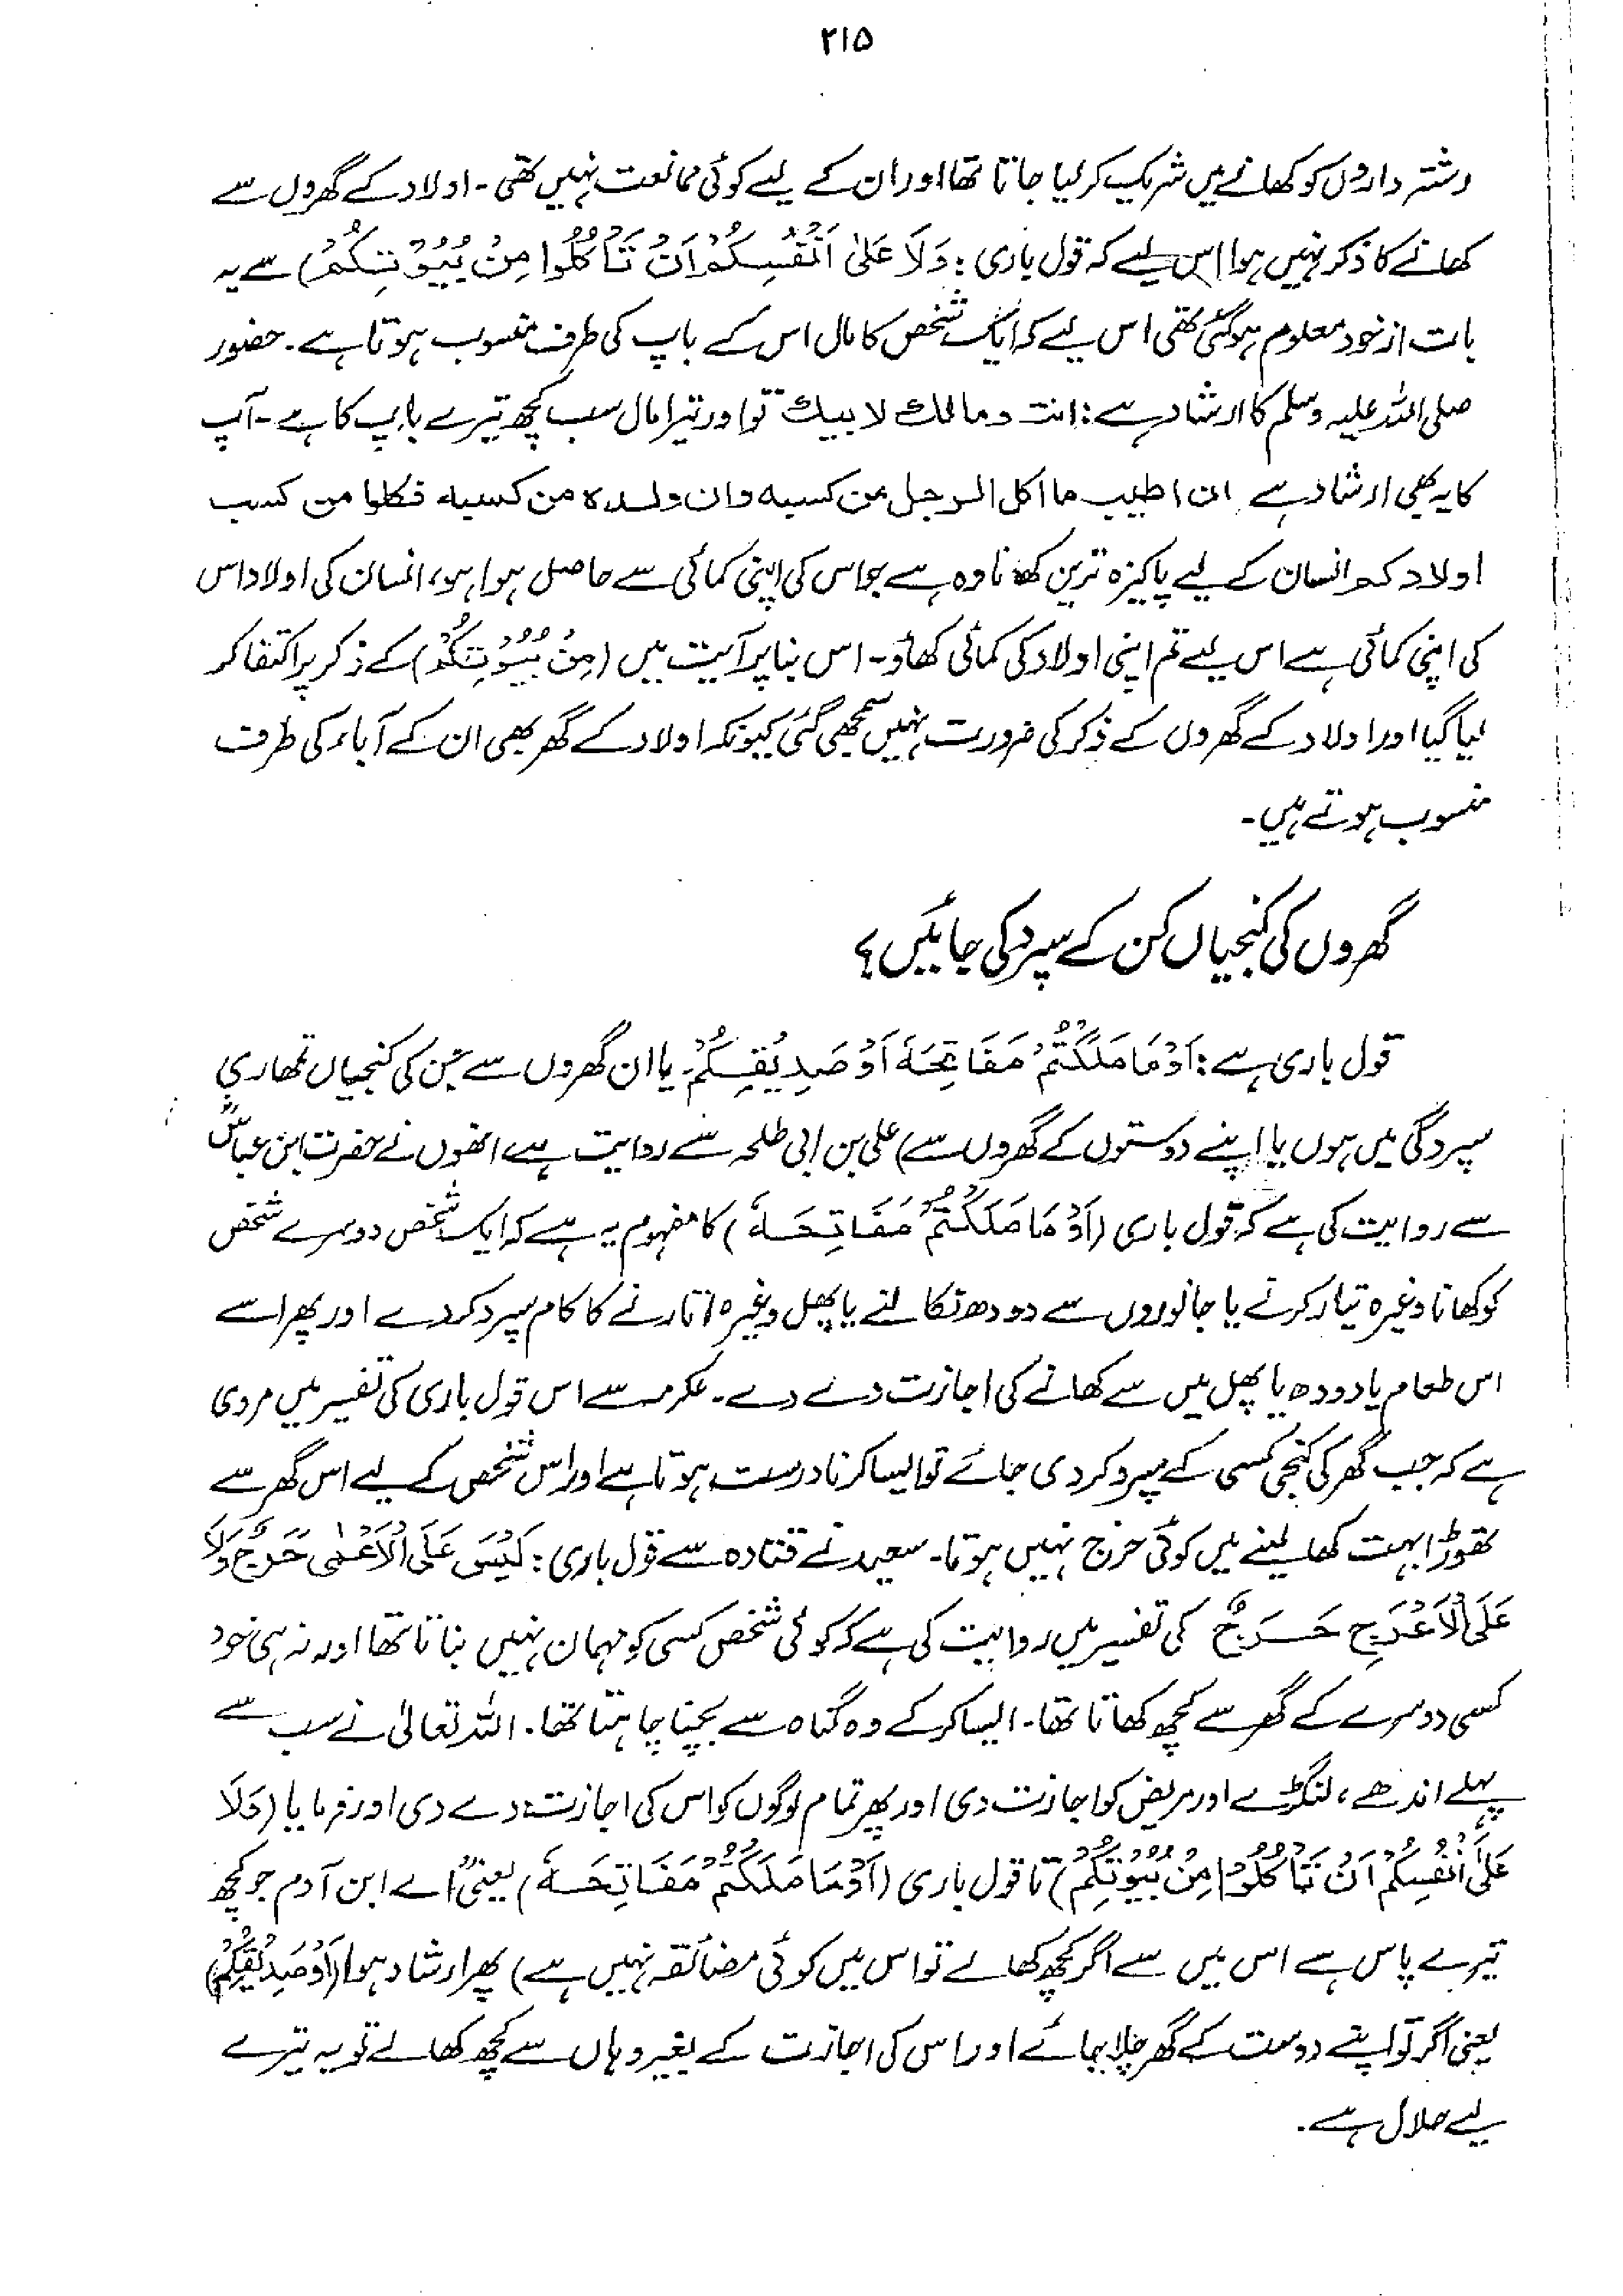 ۲۱۵
رشتہ داروں کو کھانے میں شریک کر لیا جاتا تھا اور ان کے لیے کوئی ممانعت نہیں تھی۔ اولاد کے گھروں سے
کھانے کا ذکر نہیں ہوا اس لیے کہ قول باری : وَلَا عَلٰی اَنْفُسِكُمْ اَنْ تَأْكُلُوا مِنْ بُيُوْتِكُمْ) سے یہ
بات از خود معلوم ہو گئی تھی اس لیے کہ ایک شخص کا مال اس کے باپ کی طرف منسوب ہوتا ہے۔ حضور
صلی اللہ علیہ وسلم کا ارشاد ہے : انت ومالك لابيك تو اور تیرا مال سب کچھ تیرے باپ کا ہے۔ آپ
کا یہ بھی ارشاد ہے ان اطيب ما اكل الرجل من كسبه وان ولده من كسبه فكلوا من كسب
اولادكم انسان کے لیے پاکیزہ ترین کھانا وہ ہے جو اس کی اپنی کمائی سے حاصل ہوا ہو، انسان کی اولاد اس
کی اپنی کمائی ہے اس لیے تم اپنی اولاد کی کمائی کھاؤ۔ اس بنا پر آیت میں (مِنْ بُيُوْتِكُمْ) کے ذکر پر اکتفا کر
لیا گیا اور اولاد کے گھروں کے ذکر کی ضرورت نہیں سمجھی گئی کیونکہ اولاد کے گھر بھی ان کے آباء کی طرف
منسوب ہوتے ہیں۔
گھروں کی کنجیاں کن کے سپرد کی جائیں؟
قول باری ہے : اَوْ مَا مَلَكْتُمْ مَفَاتِحَهٗ اَوْ صَدِيْقِكُمْ۔ یا ان گھروں سے جن کی کنجیاں تمھاری
سپردگی میں ہوں یا اپنے دوستوں کے گھروں سے) علی بن ابی طلحہ سے روایت ہے انھوں نے حضرت ابن عباسؓ
سے روایت کی ہے کہ قول باری (اَوْ مَا مَلَكْتُمْ مَفَاتِحَهٗ) کا مفہوم یہ ہے کہ ایک شخص دوسرے شخص
کو کھانا وغیرہ تیار کرنے یا جانوروں سے دودھ نکالنے یا پھل وغیرہ اتارنے کا کام سپرد کر دے اور پھر اسے
اس طعام یا دودھ یا پھل میں سے کھانے کی اجازت دے دے۔ عکرمہ سے اس قول باری کی تفسیر میں مروی
ہے کہ جب گھر کی کنجی کسی کے سپرد کر دی جائے تو ایسا کرنا درست ہوتا ہے اور اس شخص کے لیے اس گھر سے
تھوڑا بہت کھا لینے میں کوئی حرج نہیں ہوتا۔ سعید نے قتادہ سے قول باری : لَيْسَ عَلَى الْاَعْمٰى حَرَجٌ وَّلَا
عَلَى الْاَعْرَجِ حَرَجٌ کی تفسیر میں روایت کی ہے کہ کوئی شخص کسی کو مہمان نہیں بناتا تھا اور نہ ہی خود
کسی دوسرے کے گھر سے کچھ کھاتا تھا۔ ایسا کر کے وہ گناہ سے بچنا چاہتا تھا۔ اللہ تعالیٰ نے سب سے
پہلے اندھے، لنگڑے اور مریض کو اجازت دی اور پھر تمام لوگوں کو اس کی اجازت دے دی اور فرمایا (وَلَا
عَلٰی اَنْفُسِكُمْ اَنْ تَأْكُلُوْا مِنْ بُيُوْتِكُمْ) تا قول باری (اَوْ مَا مَلَكْتُمْ مَفَاتِحَهٗ) یعنی "اے ابن آدم جو کچھ
تیرے پاس ہے اس میں سے اگر کچھ کھا لے تو اس میں کوئی مضائقہ نہیں ہے) پھر ارشاد ہوا (اَوْ صَدِيْقِكُمْ)
یعنی اگر تو اپنے دوست کے گھر چلا جائے اور اس کی اجازت کے بغیر وہاں سے کچھ کھا لے تو یہ تیرے
لیے حلال ہے۔